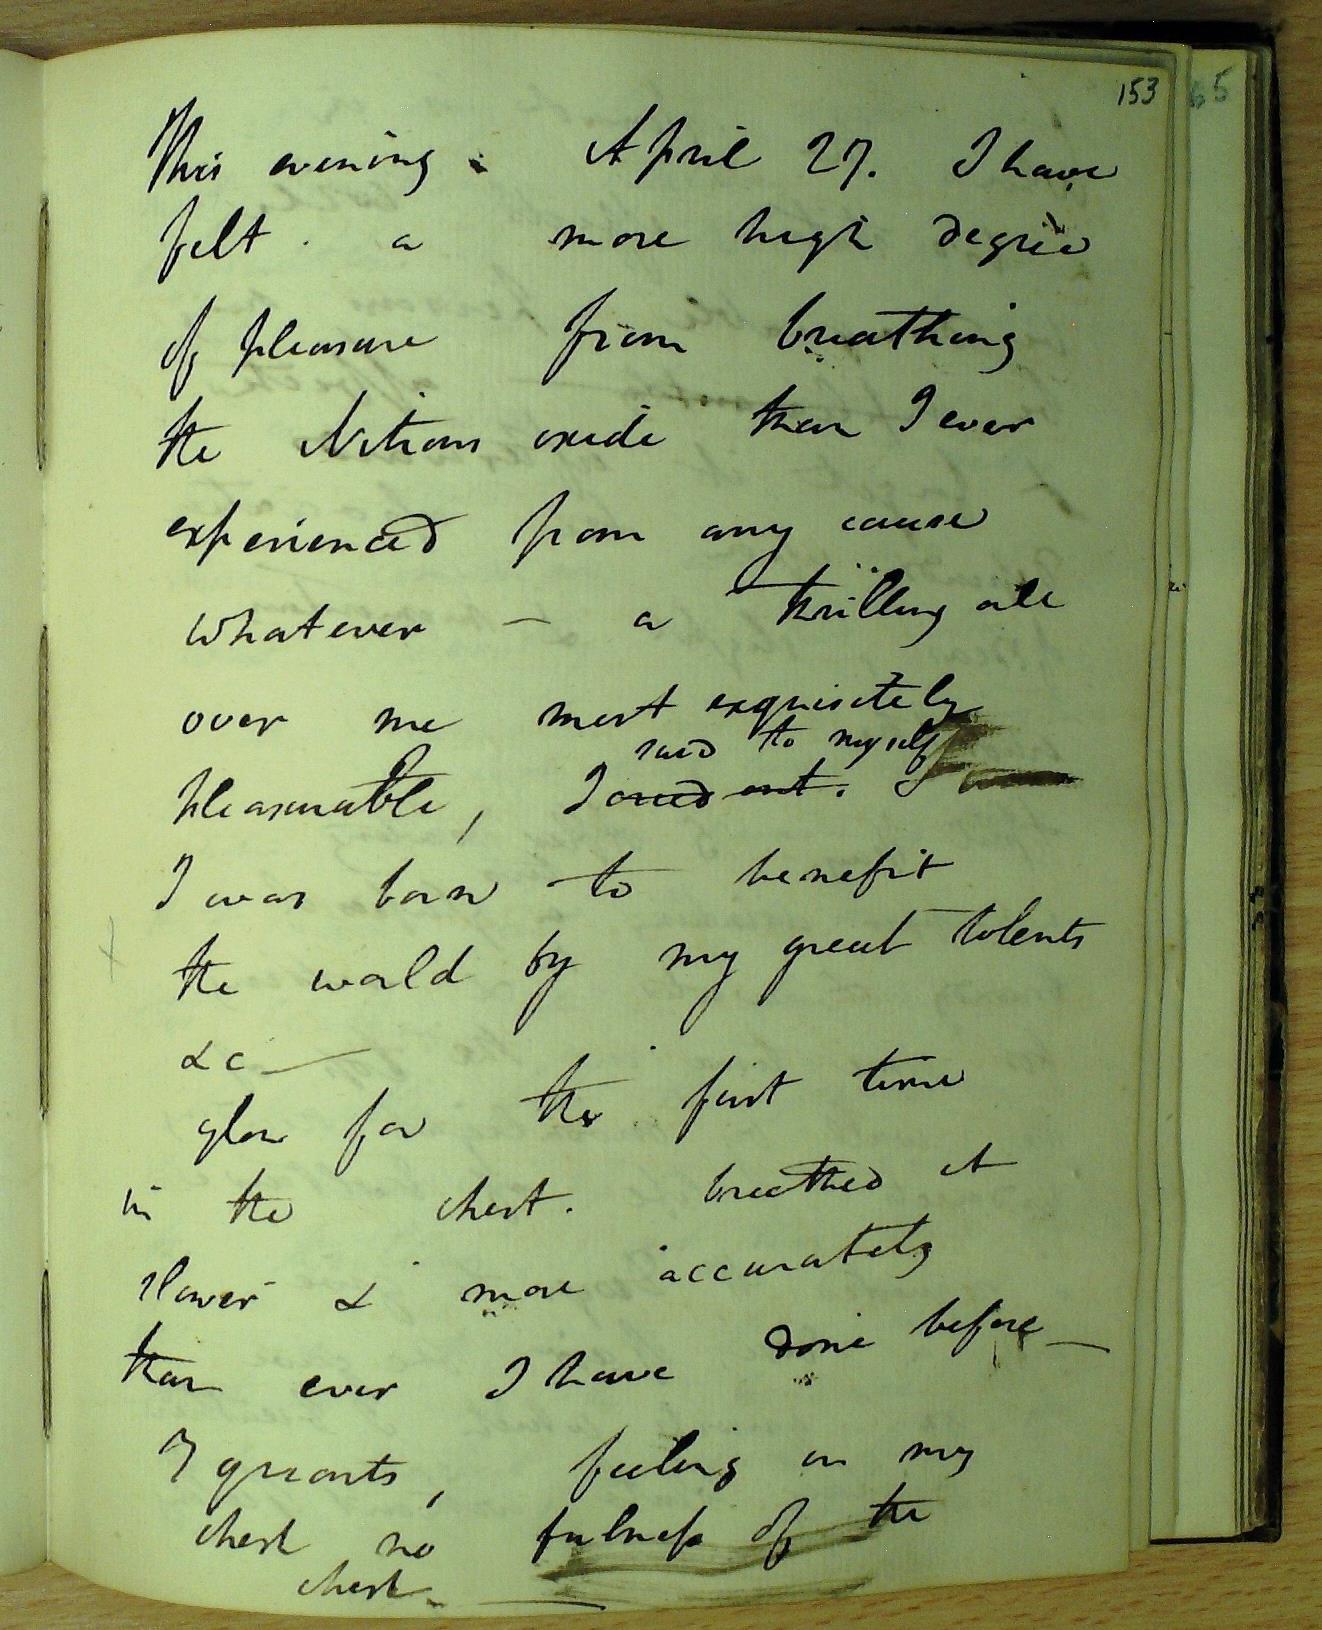 153
65
This evening. April 27. I have
felt. a more high degree
of pleasure from breathing
the Nitrous oxide than I ever
experienced from any cause
whatever — a thrilling all
over me most exquisitely
said to myself
pleasurable, I cried out. I
I was born to benefit
the world by my great talents
&c —
glow for the first time
in the chest. breathed it
slower & more accurately
than ever I have done before —
7 quarts, feeling in my
chest no fulness of the
chest.